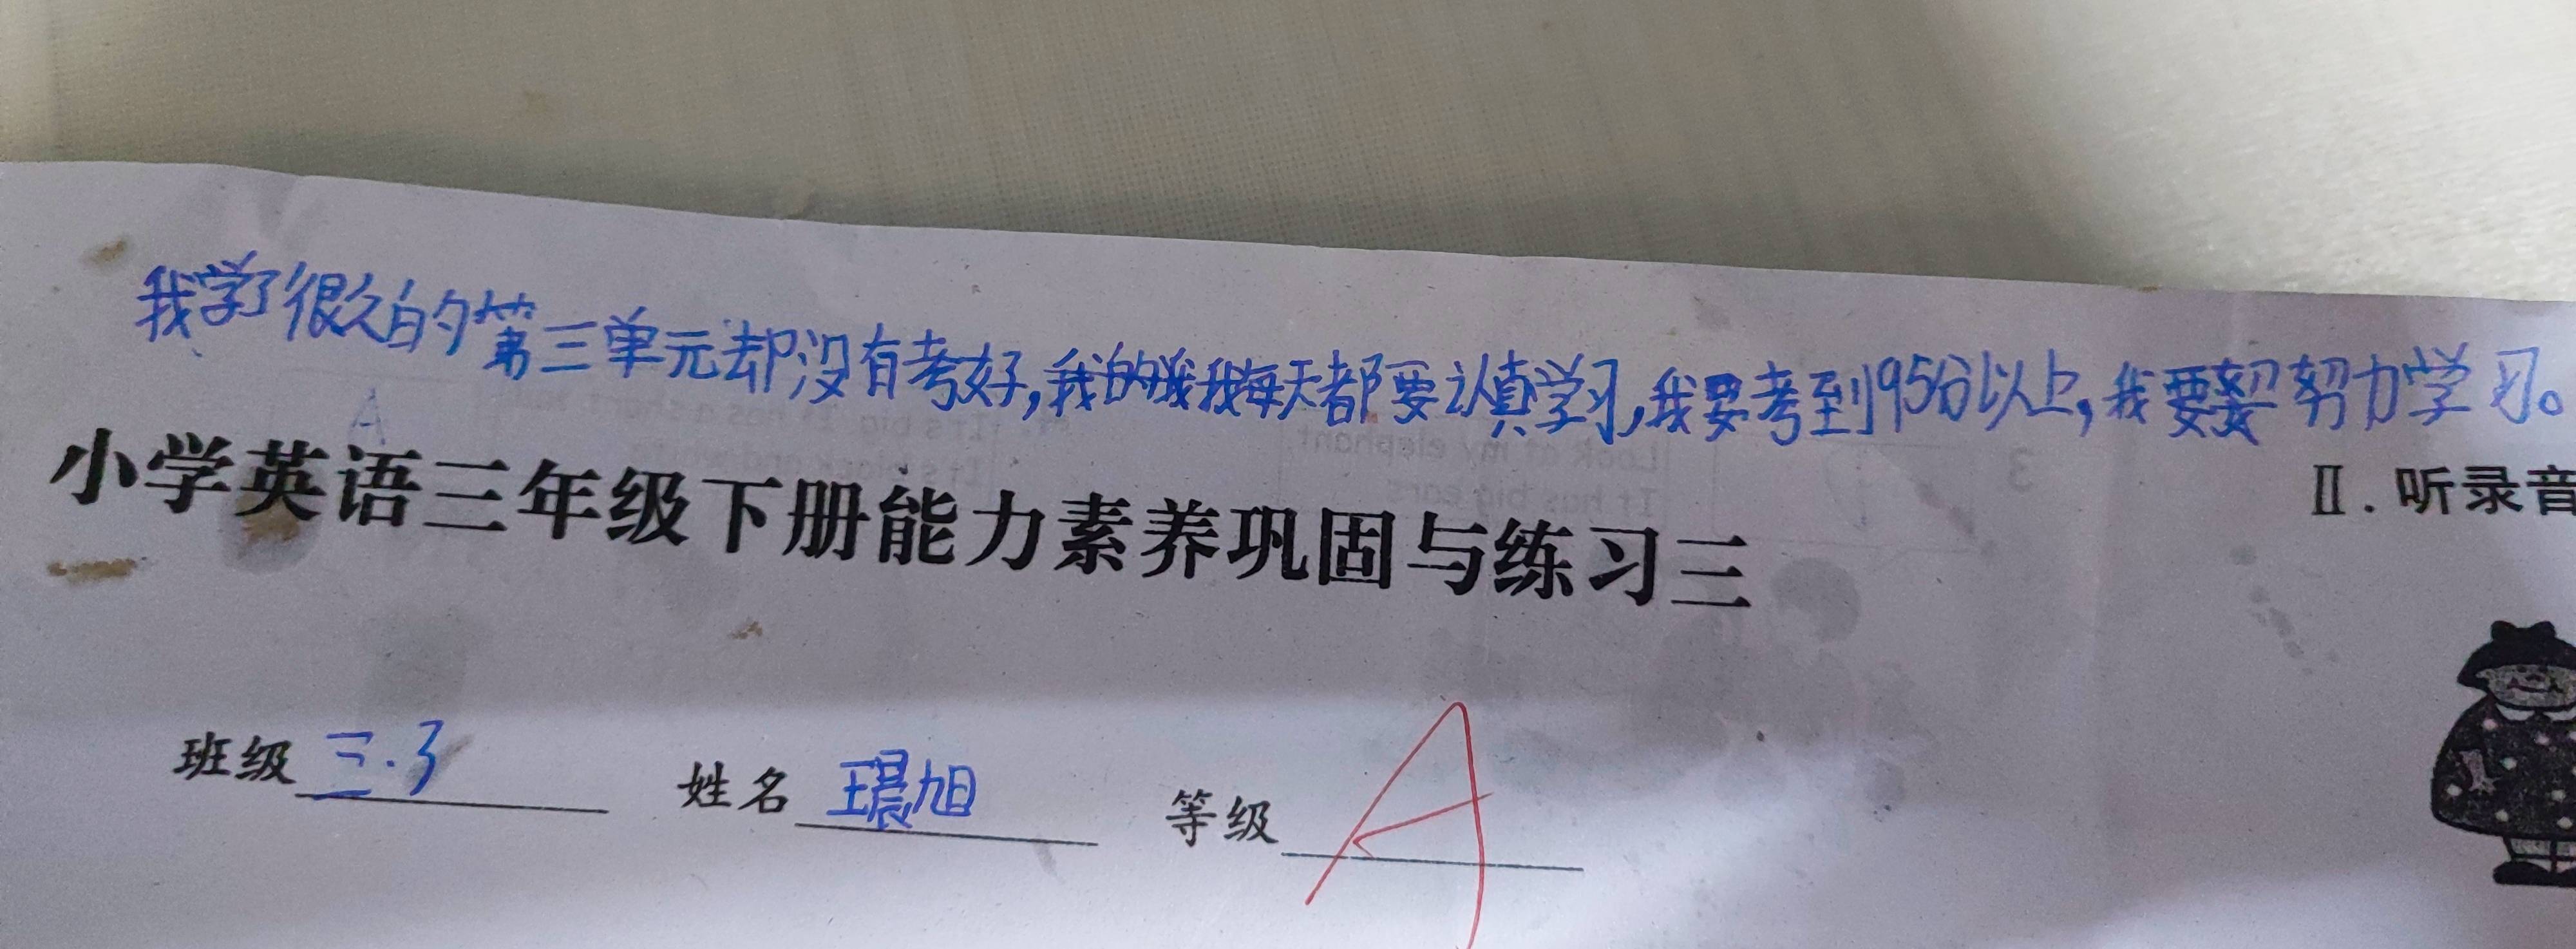 我学了很久的第三单元却没有考好,我的我我每天都要认真学习,我要考到95分以上,我要努力学习。
小学英语三年级下册能力素养巩固与练习三
Ⅱ.听录音
班级 三.3 姓名 王晨旭 等级 A